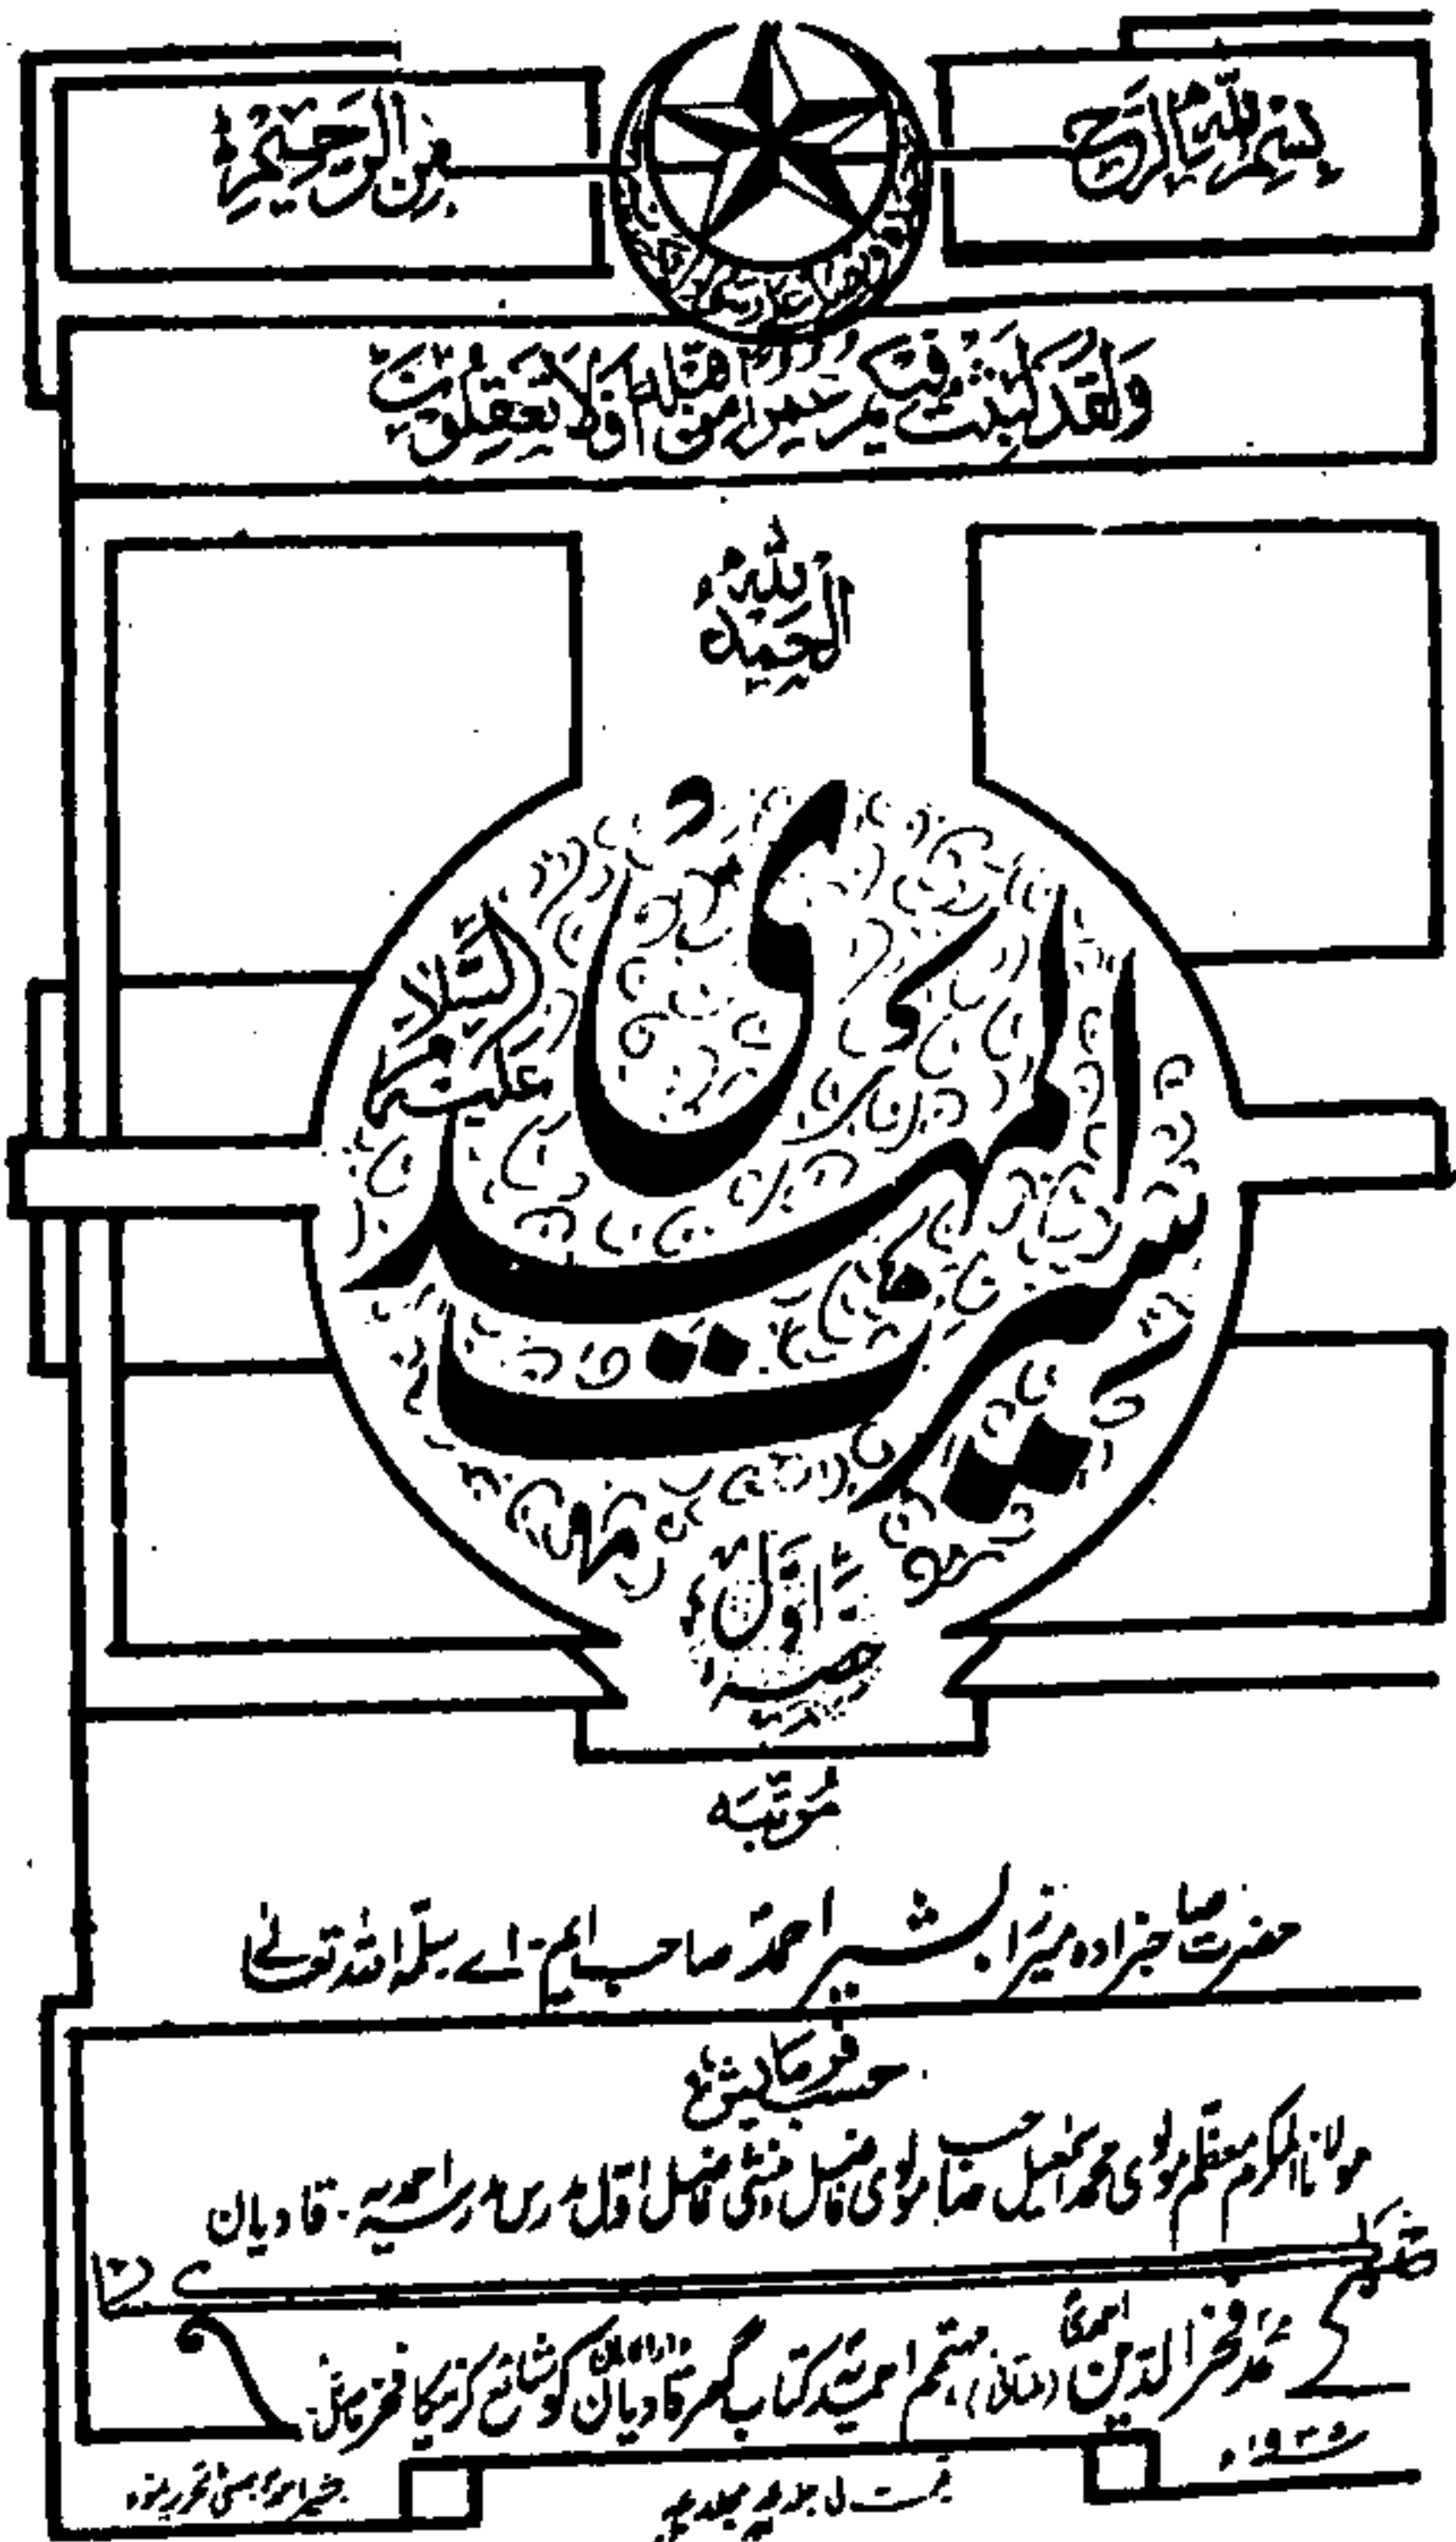 بسم اللہ الرحمٰن الرحیم
وَلَقَدْ لَبِثْتُ فِيكُمْ عُمُرًا مِّن قَبْلِهِ أَفَلَا تَعْقِلُونَ
الحمد للہ
سیرت المہدی
علیہ السلام
حصہ اول
مرتبہ
حضرت صاحبزادہ میرزا بشیر احمد صاحب ایم۔ اے سلمہ اللہ تعالیٰ
حسب فرمائش
مولانا المکرم معظم مولوی محمد اسمٰعیل صاحب مولوی فاضل و منشی فاضل اول مدرس مدرسہ احمدیہ۔ قادیان
محمد فخر الدین احمدی (ملتانی) مہتمم احمدیہ کتاب گھر قادیان دارالامان کو شائع کرنیکا فخر حاصل
۱۹۳۵ء
قیمت